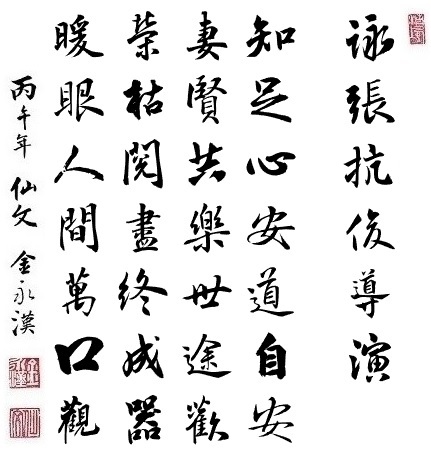 詠張抗俊導演
知足心安道自安
妻賢共樂世途歡
榮枯閱盡終成器
暖眼人間萬口觀
丙午年 仙文 金永漢